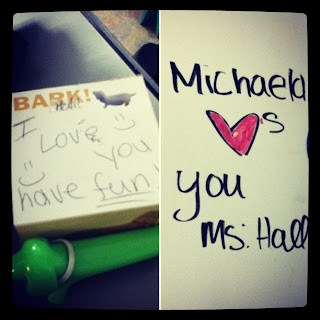 BARK!
I Love
you
have fun!
Michaela
s
you
Ms. Hall